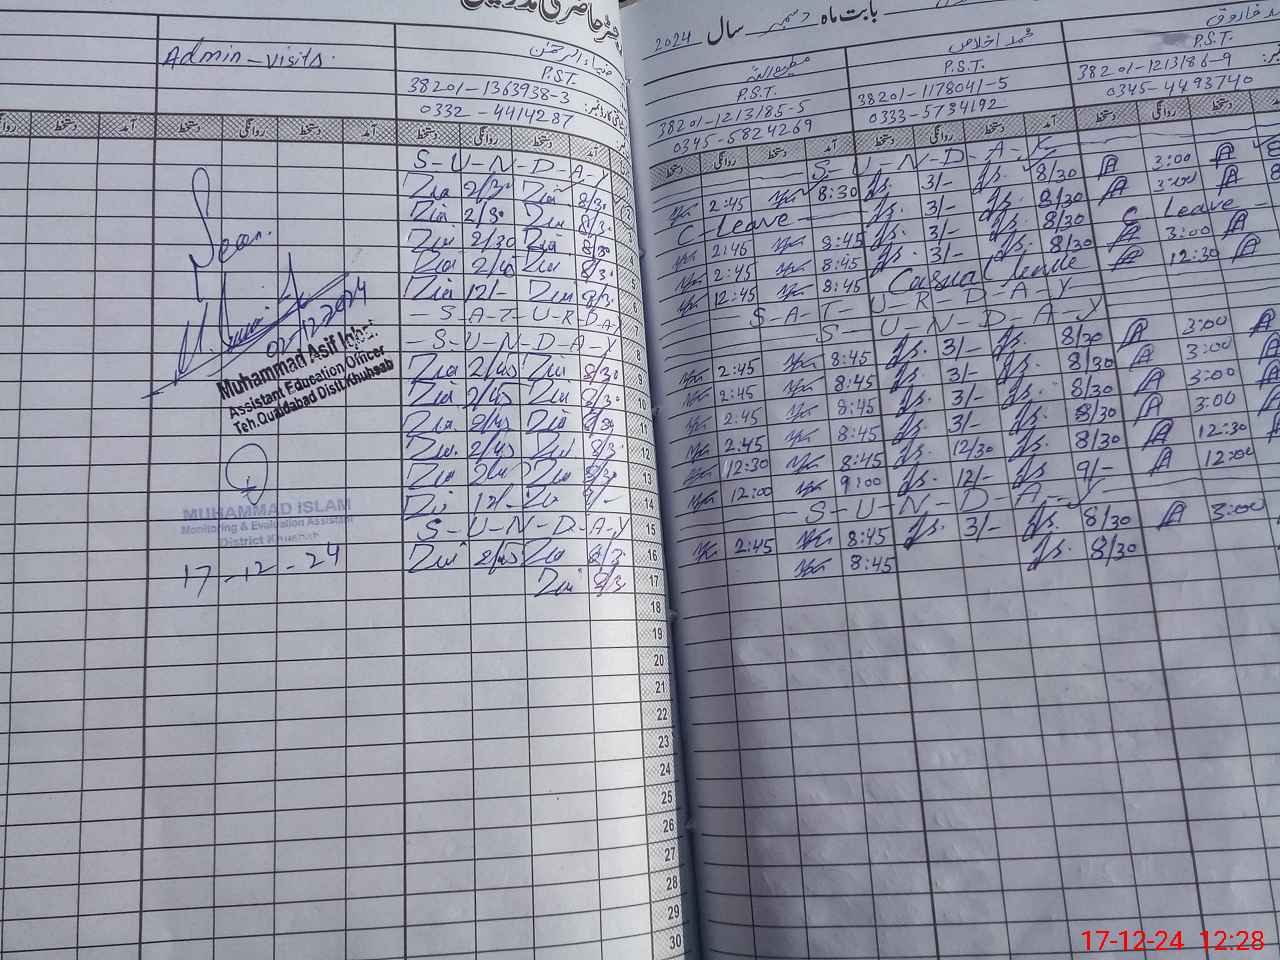 بابت ماہ دسمبر سال 2024
Admin-visits.
ضیاء الرحمٰن
P.S.T.
38201-1363938-3
0332-4414287
P.S.T.
38201-1213185-5
0345-5824269
محمد اخلاص
P.S.T.
38201-1178041-5
0333-5734192
P.S.T.
38201-1213186-9
0345-4493740
روانگی دستخط آمد دستخط روانگی دستخط آمد دستخط روانگی دستخط آمد
دستخط روانگی دستخط آمد دستخط روانگی دستخط آمد دستخط روانگی دستخط
S-U-N-D-A-Y
Zia 2/30 Zia 8/30
Zia 2/30 Zia 8/30
Zia 2/30 Zia 8/30
Zia 2/45 Zia 8/30
Zia 12/- Zia 8/30
-S-A-T-U-R-D-A-Y
-S-U-N-D-A-Y
Zia 2/45 Zia 8/30
Zia 2/45 Zia 8/30
Zia 2/45 Zia 8/30
Zia 2/45 Zia 8/30
Zia Zia 8/30
12/- 9/-
S-U-N-D-A-Y
Zia 2/45 Zia 8/30
Zia 8/30
Seen.
02-12-2024
Muhammad Asif Iqbal
Assistant Education Officer
Teh.Quaidabad Distt.Khushab
MUHAMMAD ISLAM
Monitoring & Evaluation Assistant
District Khushab
17-12-24
5
6
7
8
9
10
11
12
13
14
15
16
17
18
19
20
21
22
23
24
25
26
27
28
29
30
S-U-N-D-A-Y
2:45 8:30 3/- 8/30 3:00
C-Leave- 3/- 8/30 3:00
2:45 8:45 3/- 8/30 C Leave-
2:45 8:45 3/- 8/30 3:00
12:45 8:45 Casual leave 12:30
S-A-T-U-R-D-A-Y
S-U-N-D-A-Y
2:45 8:45 3/- 8/30 3:00
2:45 8:45 3/- 8/30 3:00
2:45 8:45 3/- 8/30 3:00
2:45 8:45 3/- 8/30 3:00
12:30 8:45 12/30 8/30 12:30
12:00 9:00 12/- 9/- 12:00
-S-U-N-D-A-Y-
2:45 8:45 3/- 8/30 3:00
8:45 8/30
17-12-24 12:28